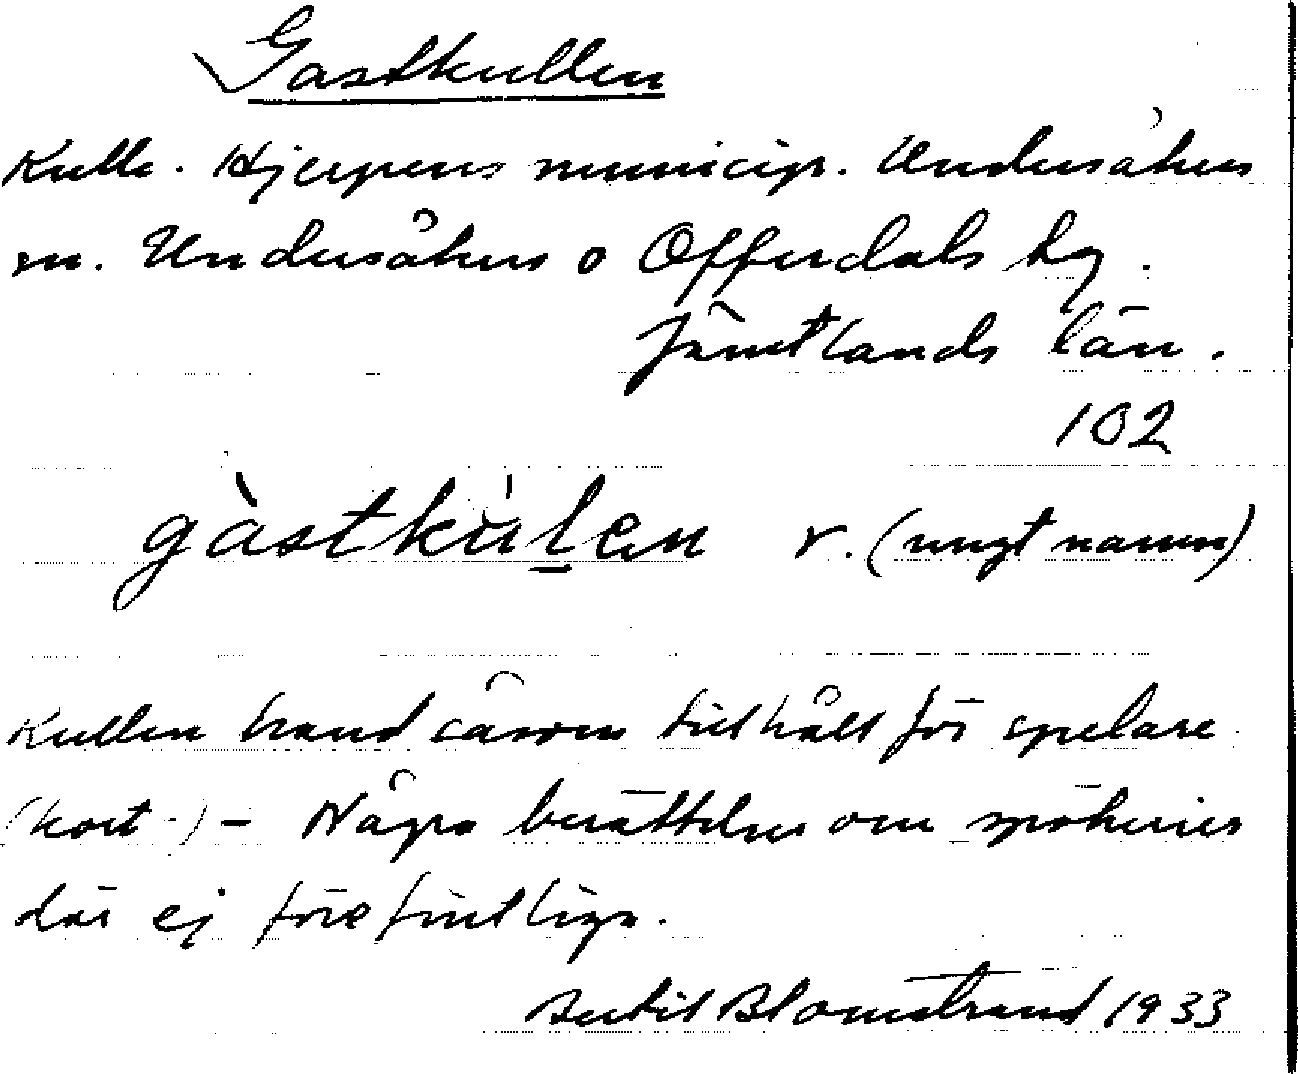 Gastkullen
Kulle. Hjerpens municip. Undersåkers
sn. Undersåkers o Offerdals hg.
Jämtlands län.
102
gàstkùlen r. (ungt namn)
Kullen hand såsom tillhåll för spelare
(kort-) - Några berättelser om spökerier
där ej förefintliga.
Bertil Blomstrand 1933